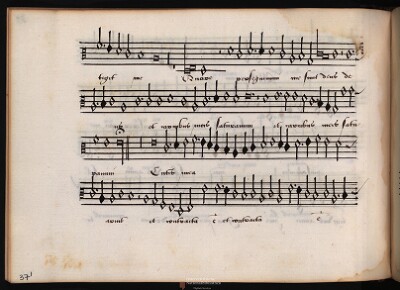 tigit me Quare persequimini me sicut deus de
et carnibus meis saturamini et carnibus meis satu
ramini Cutis mea
aruit et contracta ē et contracta ē
37